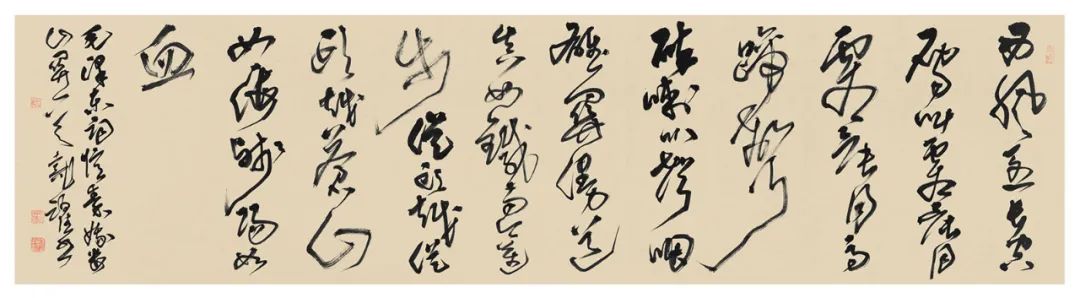 西風烈長空
雁叫霜晨月
霜晨月馬
蹄聲
碎喇叭聲咽
雄關漫道
真如鐵而今邁
步從頭越從
頭越蒼山
如海殘陽如
血
毛澤東詞憶秦娥婁
山關一首